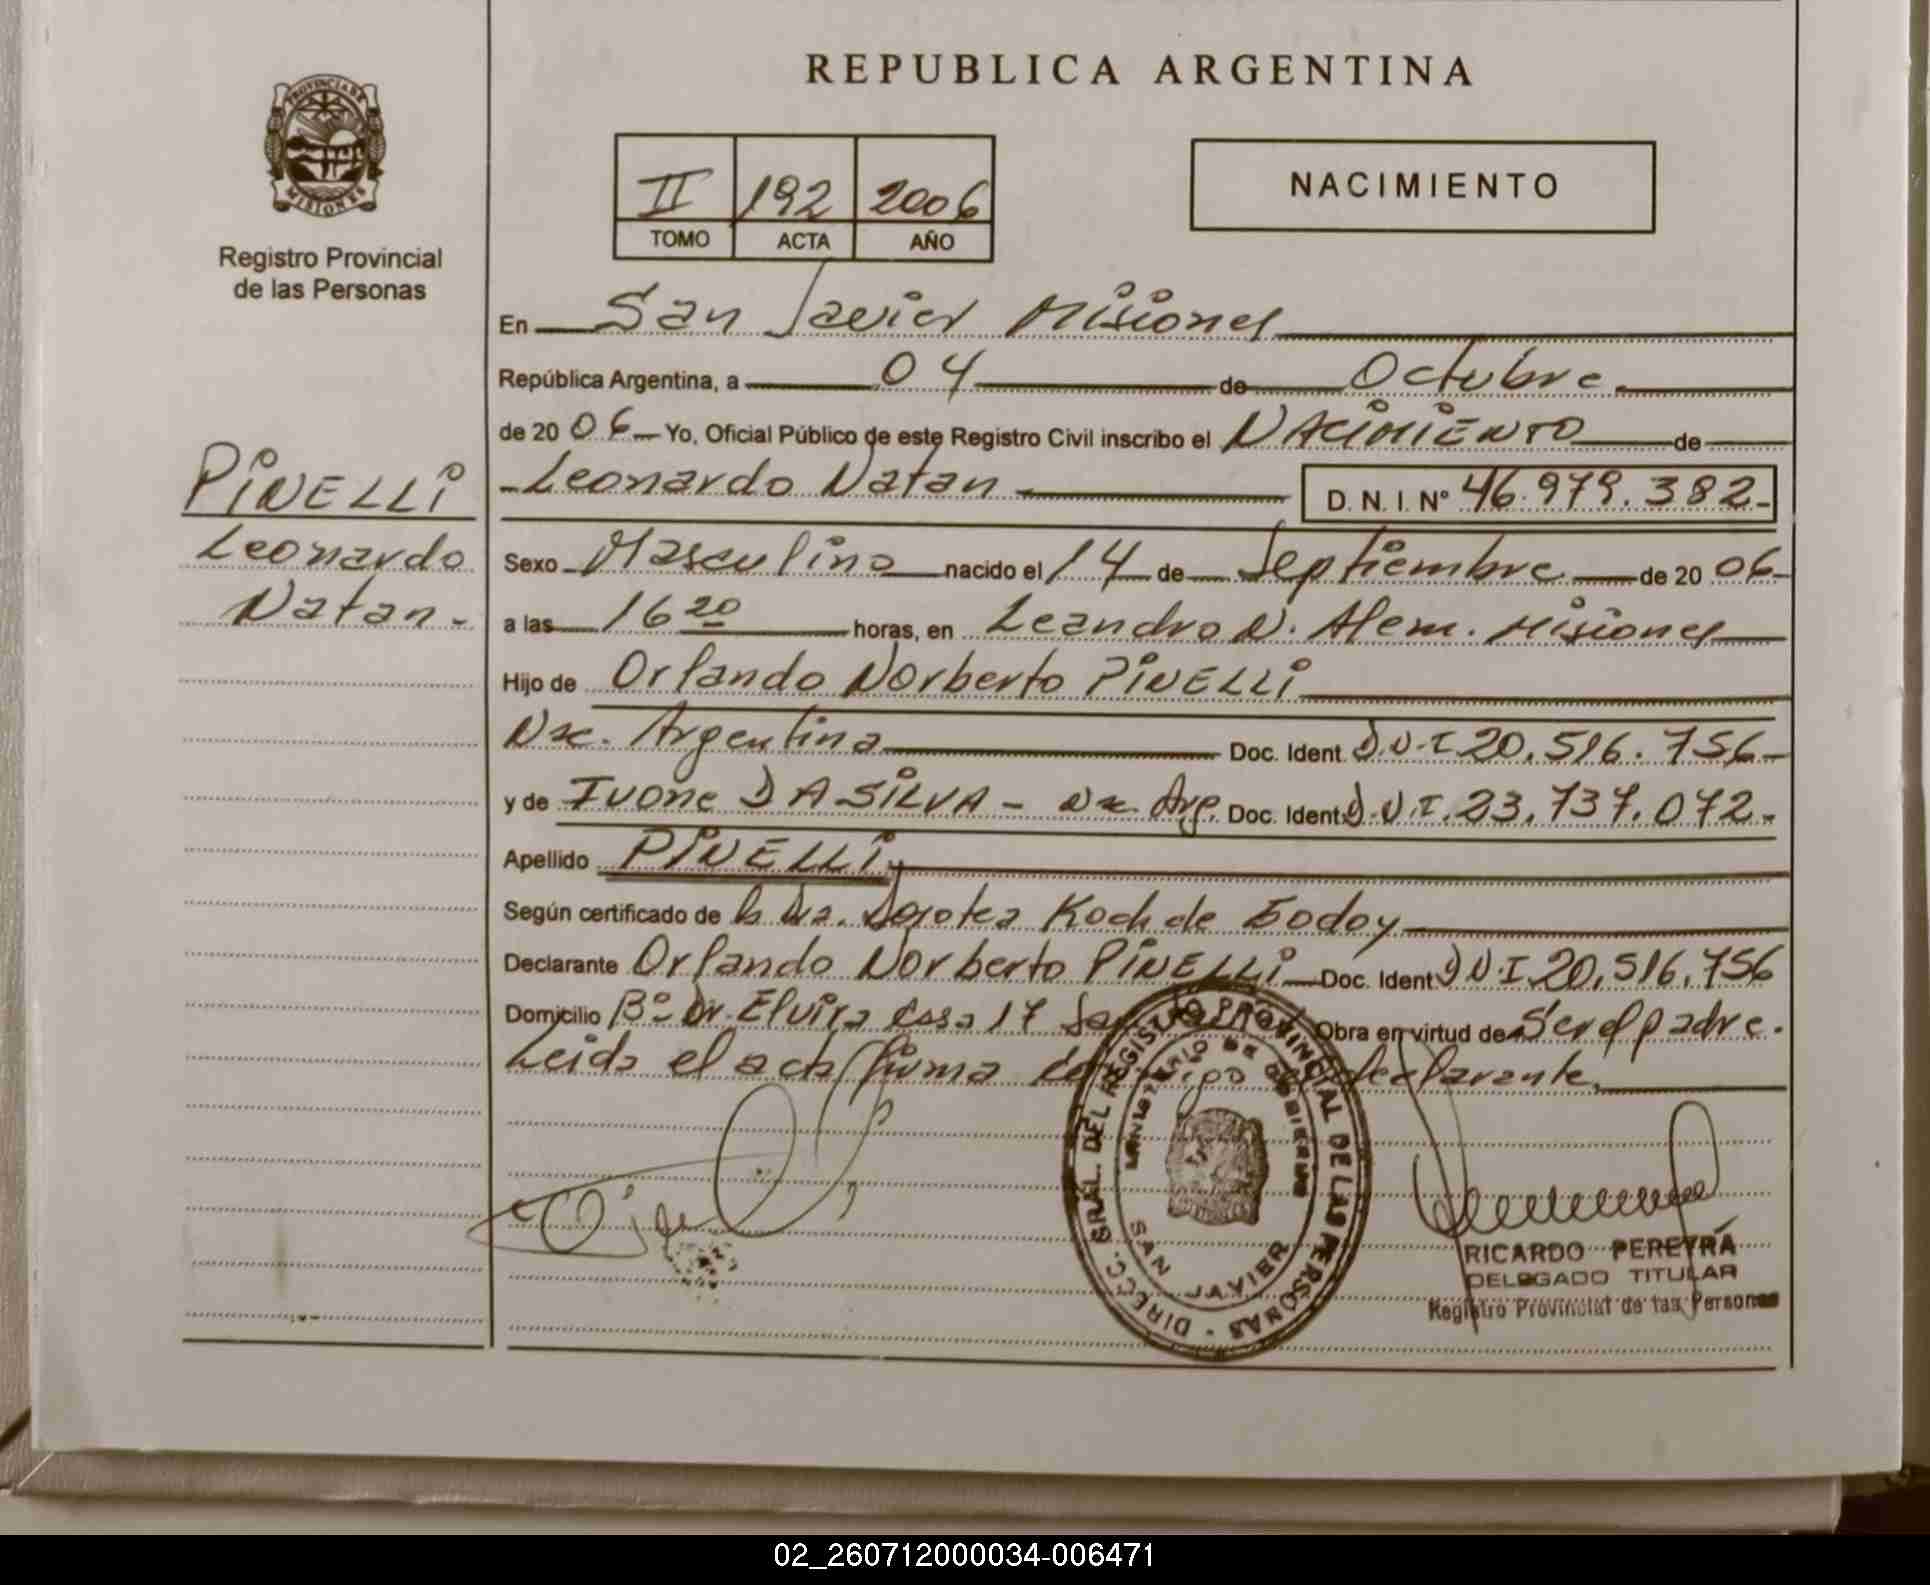 REPUBLICA ARGENTINA
PROVINCIA DE
MISIONES
Registro Provincial
de las Personas
II 192 2006
TOMO ACTA AÑO
NACIMIENTO
En San Javier Misiones
República Argentina, a 04 de Octubre
de 2006 Yo, Oficial Público de este Registro Civil inscribo el NACIMIENTO de
Leonardo Natan D. N. I. Nº 46.979.382-
PINELLI
Leonardo
Natan-
Sexo Masculino nacido el 14 de Septiembre de 2006-
a las 16 20 horas, en Leandro N. Alem. Misiones
Hijo de Orlando Norberto PINELLI
Nac. Argentina Doc. Ident. D.N.I 20.516.756-
y de Ivone DA SILVA - Nac Arg. Doc. Ident. D.N.I. 23.737.072-
Apellido PINELLI
Según certificado de la Dra. Dorotea Koch de Godoy
Declarante Orlando Norberto PINELLI Doc. Ident D.N.I 20.516.756
Domicilio Bº Dr. Elvira Casa 17 Obra en virtud de Ser el padre.
Leida el acta firma conmigo el declarante.
DIRECC. GRAL. DEL REGISTRO PROVINCIAL DE LAS PERSONAS
MINISTERIO DE GOBIERNO
SAN JAVIER
RICARDO PEREYRA
DELEGADO TITULAR
Registro Provincial de las Personas
02_260712000034-006471